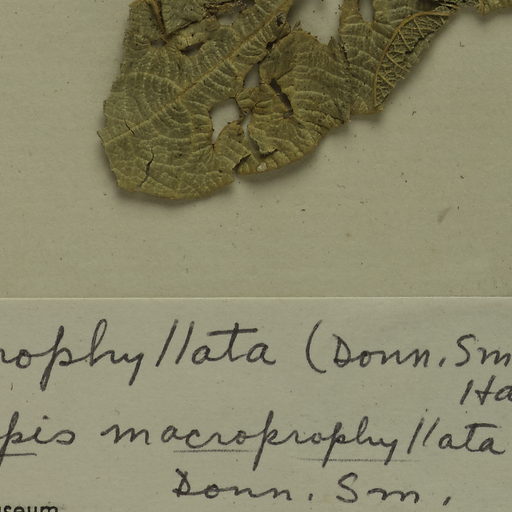 rophyllata (Donn. Sm
Ha
pis macroprophyllata
Donn. Sm.
useum